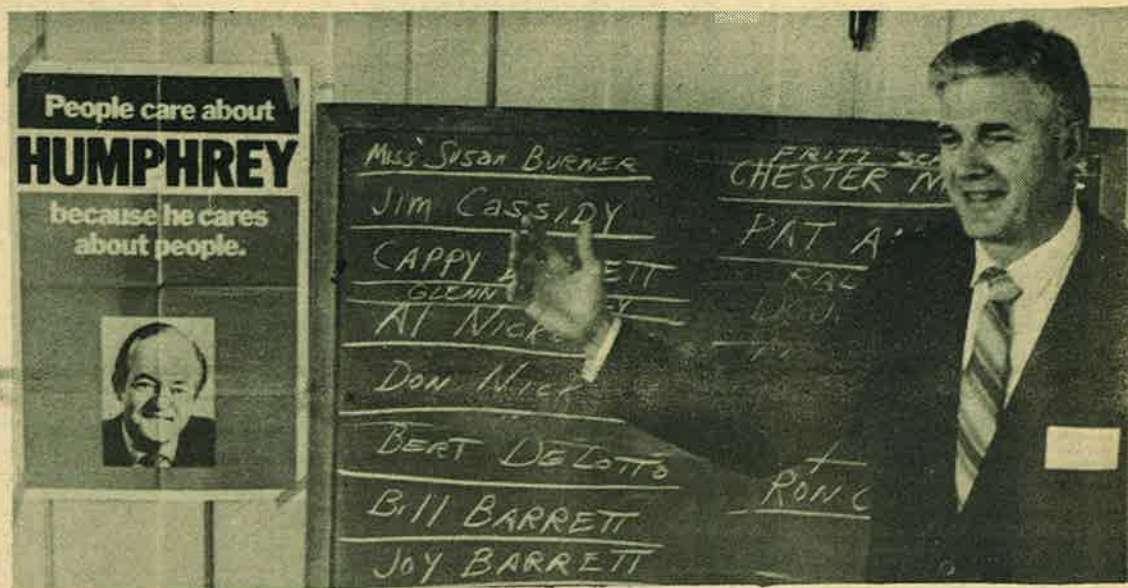 People care about
HUMPHREY
because he cares
about people.
Miss Susan BURNER
Jim CASSIDY
CAPPY
GLENN
Al
DON
BERT DELOTTO
Bill BARRETT
JOY BARRETT
FRITZ
CHESTER
PAT
RON